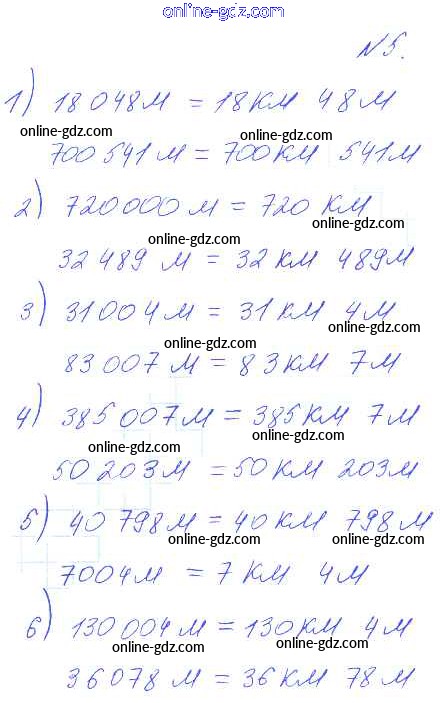 online-gdz.com
№5.
1) 18 048 м = 18 км 48 м
online-gdz.com online-gdz.com
700 541 м = 700 км 541 м
2) 720 000 м = 720 км
online-gdz.com
32 489 м = 32 км 489 м
3) 31 004 м = 31 км 4 м
online-gdz.com online-gdz.com
83 007 м = 83 км 7 м
4) 385 007 м = 385 км 7 м
online-gdz.com online-gdz.com
50 203 м = 50 км 203 м
5) 40 798 м = 40 км 798 м
online-gdz.com online-gdz.com
7004 м = 7 км 4 м
6) 130 004 м = 130 км 4 м
online-gdz.com online-gdz.com
36 078 м = 36 км 78 м